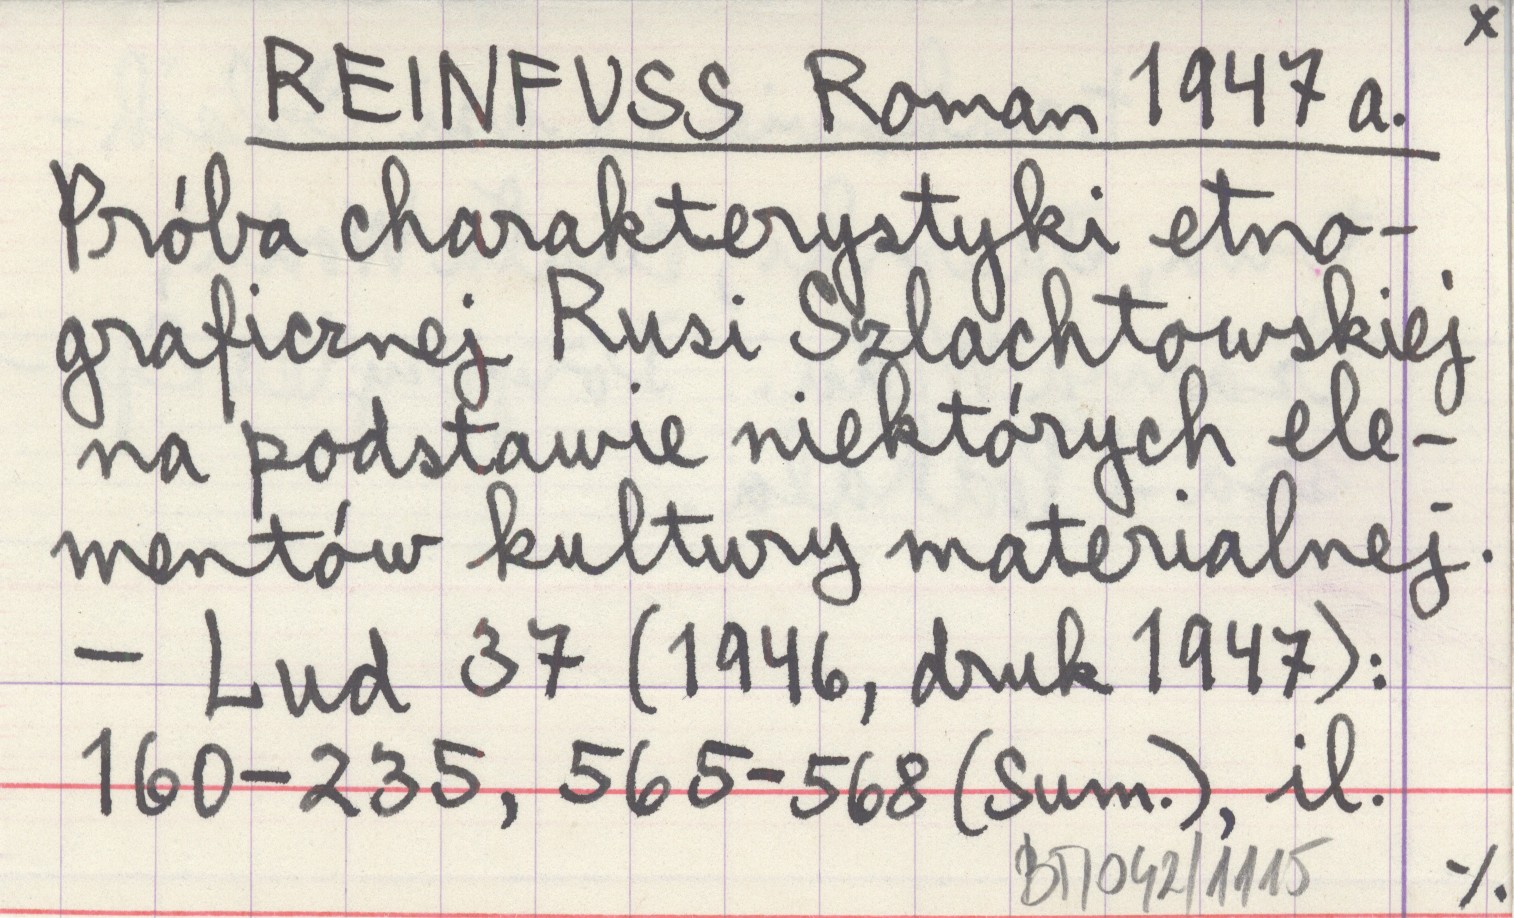 x
REINFUSS Roman 1947 a.
Próba charakterystyki etno-
graficznej Rusi Szlachtowskiej
na podstawie niektórych ele-
mentów kultury materialnej.
- Lud 37 (1946, druk 1947):
160-235, 565-568 (Sum.), il.
BT/042/1115
-/.